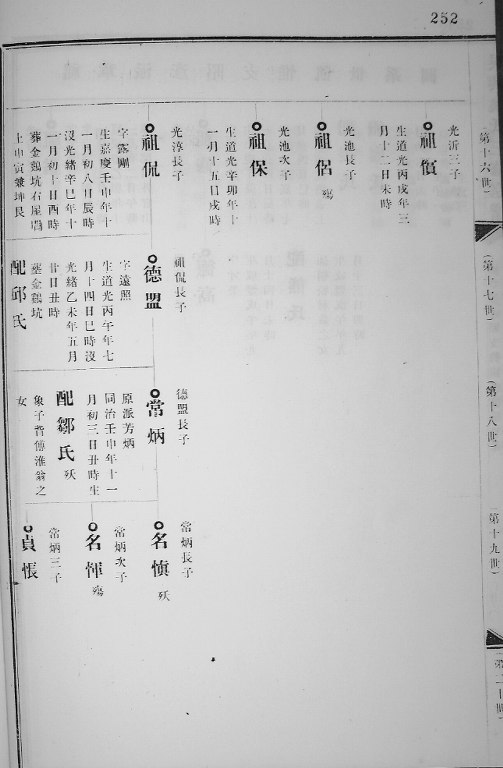 252
第十六世
光沂三子
祖儐
生道光丙戌年三
月十二日未時
光池長子
祖侶 殤
光池次子
祖保
生道光辛卯年十
一月十五日戌時
光淳長子
祖侃
字露剛
生嘉慶壬申年十
一月初八日辰時
沒光緒辛巳年十
一月初十日酉時
葬金鵝坑石星唱
上申寅兼坤艮
（第十七世）
祖侃長子
德盟
字遠照
生道光丙午年七
月十四日巳時沒
光緒乙未年五月
廿日丑時
葬金鵝坑
配邱氏
（第十八世）
德盟長子
常炳
原派芳炳
同治壬申年十一
月初三日丑時生
配鄒氏 殀
象子背傅淮翁之
女
第十九世）
常炳長子
名慎 殀
常炳次子
名惲 殤
常炳三子
貞悵